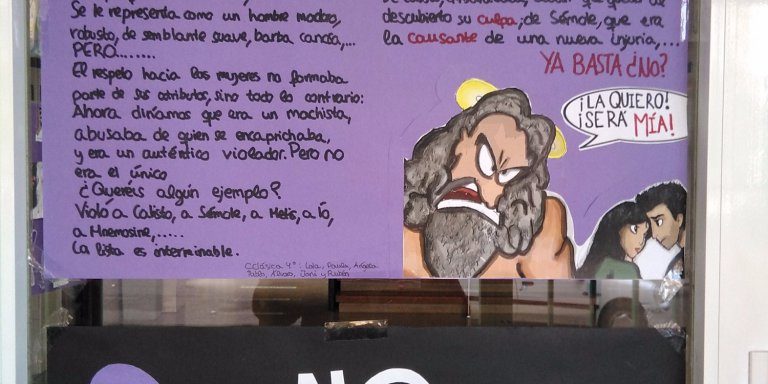 Se le representa como un hombre maduro,
robusto, de semblante suave, barba canosa,...
PERO.......
El respeto hacia las mujeres no formaba
parte de sus atributos, sino todo lo contrario:
Ahora diríamos que era un machista,
abusaba de quien se encaprichaba,
y era un auténtico violador. Pero no
era el único
¿Queréis algún ejemplo?
Violó a Calisto, a Sémele, a Metis, a Ío,
a Mnemosine,.....
La lista es interminable.
Clásica 4º: Lola, Paula, Ángela
Pablo, Álvaro, Javi y Rubén
descubierto su culpa; de Sémole, que era
la causante de una nueva injuria,...
YA BASTA ¿NO?
¡LA QUIERO!
¡SERÁ MÍA!
NO